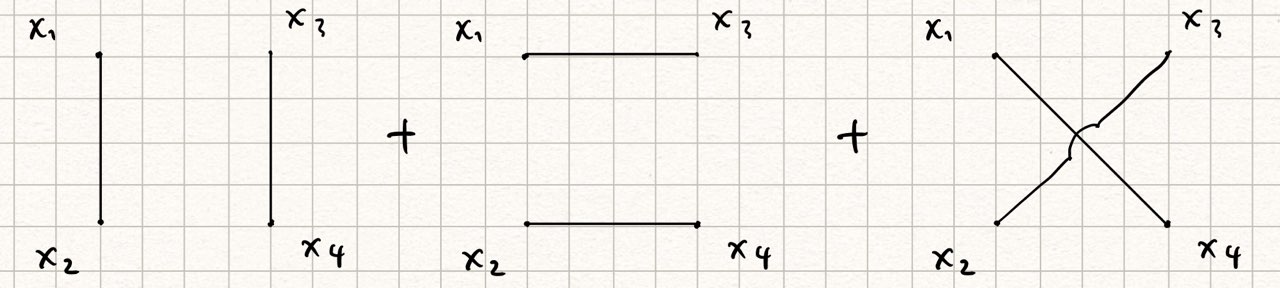 x₁ x₃ x₁ x₃ x₁ x₃
+ +
x₂ x₄ x₂ x₄ x₂ x₄